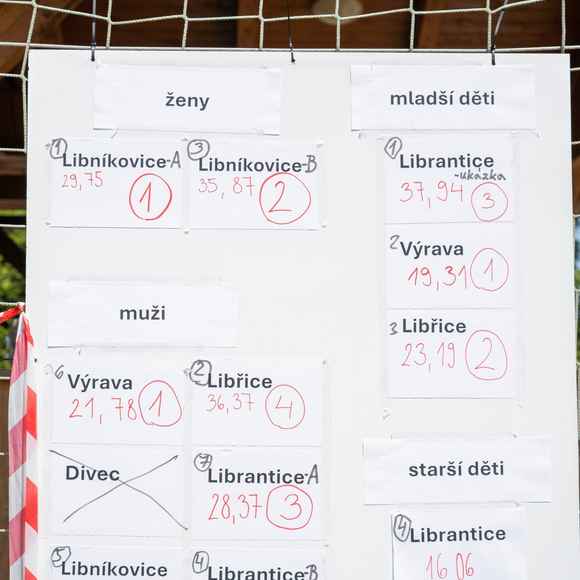 ženy
① Libníkovice-A
29,75 ①
③ Libníkovice-B
35,87 ②
muži
6 Výrava
21,78 ①
② Libřice
36,37 ④
Divec
⑦ Librantice-A
28,37 ③
⑤ Libníkovice
④ Librantice-B
mladší děti
① Librantice
-ukázka
37,94 ③
2 Výrava
19,31 ①
3 Libřice
23,19 ②
starší děti
④ Librantice
16 06